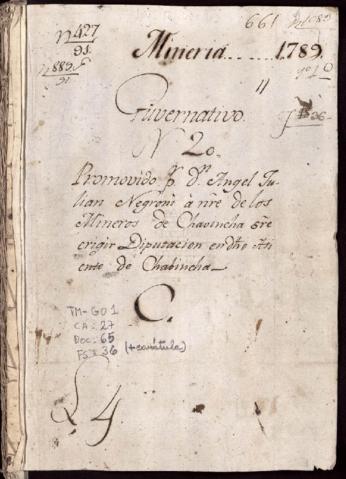 661
n 427
91.
n 889.
91
Mineria..... 1789.
11
Guvernativo.
N 20.
Promovido pr. Dn. Angel Ju-
lian Negron à nre de los
Mineros de Chavincha sre
erigir Diputacion en dho Asi
ento de Chabincha
C.
TM-GO1
CA: 27
Doc: 65
Fs: 36 (+carátula)
L 4